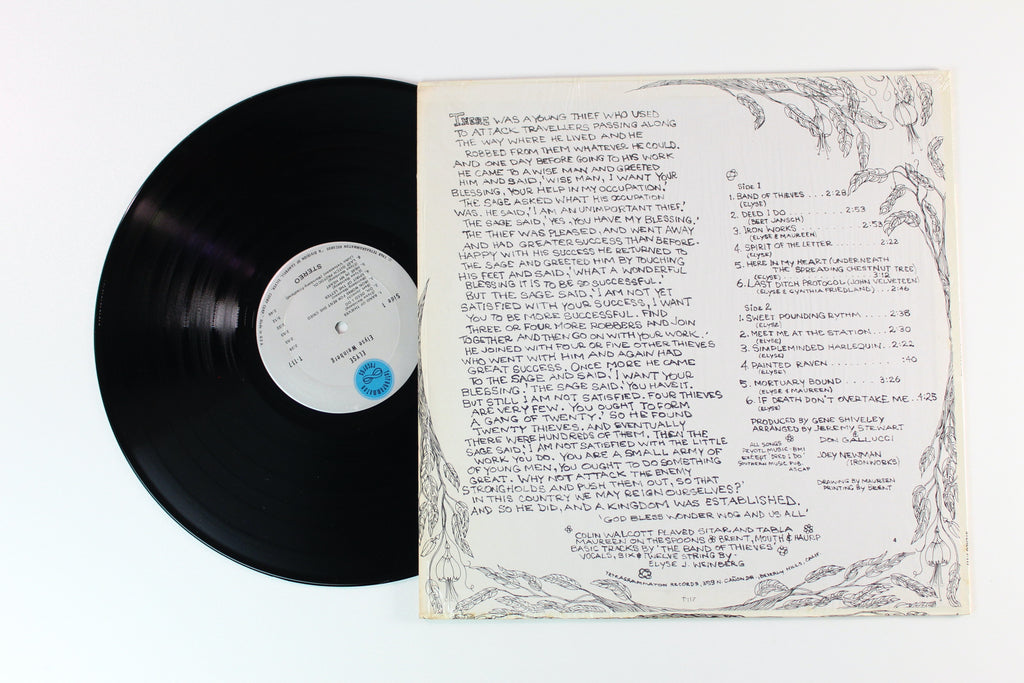 THERE WAS A YOUNG THIEF WHO USED
TO ATTACK TRAVELLERS PASSING ALONG
THE WAY WHERE HE LIVED AND HE
ROBBED FROM THEM WHATEVER HE COULD.
AND ONE DAY BEFORE GOING TO HIS WORK
HE CAME TO A WISE MAN AND GREETED
HIM AND SAID, 'WISE MAN, I WANT YOUR
BLESSING, YOUR HELP IN MY OCCUPATION.'
THE SAGE ASKED WHAT HIS OCCUPATION
WAS. HE SAID, 'I AM AN UNIMPORTANT THIEF.'
THE SAGE SAID, 'YES, YOU HAVE MY BLESSING.'
THE THIEF WAS PLEASED, AND WENT AWAY
AND HAD GREATER SUCCESS THAN BEFORE.
HAPPY WITH HIS SUCCESS HE RETURNED TO
THE SAGE AND GREETED HIM BY TOUCHING
HIS FEET AND SAID, 'WHAT A WONDERFUL
BLESSING IT IS TO BE SO SUCCESSFUL.'
BUT THE SAGE SAID, 'I AM NOT YET
SATISFIED WITH YOUR SUCCESS, I WANT
YOU TO BE MORE SUCCESSFUL. FIND
THREE OR FOUR MORE ROBBERS AND JOIN
TOGETHER AND THEN GO ON WITH YOUR WORK.'
HE JOINED WITH FOUR OR FIVE OTHER THIEVES
WHO WENT WITH HIM AND AGAIN HAD
GREAT SUCCESS. ONCE MORE HE CAME
TO THE SAGE AND SAID, 'I WANT YOUR
BLESSING.' THE SAGE SAID, 'YOU HAVE IT.
BUT STILL I AM NOT SATISFIED. FOUR THIEVES
ARE VERY FEW. YOU OUGHT TO FORM
A GANG OF TWENTY.' SO HE FOUND
TWENTY THIEVES. AND EVENTUALLY
THERE WERE HUNDREDS OF THEM. THEN THE
SAGE SAID, 'I AM NOT SATISFIED WITH THE LITTLE
WORK YOU DO. YOU ARE A SMALL ARMY OF
OF YOUNG MEN, YOU OUGHT TO DO SOMETHING
GREAT. WHY NOT ATTACK THE ENEMY
STRONGHOLDS AND PUSH THEM OUT, SO THAT
IN THIS COUNTRY WE MAY REIGN OURSELVES?'
AND SO HE DID, AND A KINGDOM WAS ESTABLISHED.
'GOD BLESS WONDER WOG AND US ALL'
COLIN WALCOTT PLAYED SITAR AND TABLA
MAUREEN ON THE SPOONS BRENT, MOUTH & HAURP
BASIC TRACKS BY 'THE BAND OF THIEVES'
VOCALS, SIX & TWELVE STRING BY-
ELYSE J. WEINBERG
TETRAGRAMMATON RECORDS, 359 N. CAÑON DR., BEVERLY HILLS, CALIF.
T 117
Side 1
1. BAND OF THIEVES . . . 2:28
(ELYSE)
2. DEED I DO . . . . . . . . 2:53
(BERT JANSCH)
3. IRON WORKS . . . . . . . . 2:53
(ELYSE & MAUREEN)
4. SPIRIT OF THE LETTER . . . . . 2:22
5. HERE IN MY HEART (UNDERNEATH
THE SPREADING CHESTNUT TREE)
(ELYSE) . . . . . . . . . 3:12
6. LAST DITCH PROTOCOL (JOHN VELVETEEN)
(ELYSE & CYNTHIA FRIEDLAND) . . . 2:46
Side 2
1. SWEET POUNDING RYTHM . . . . 2:38
(ELYSE)
2. MEET ME AT THE STATION . . . 2:30
(ELYSE)
3. SIMPLEMINDED HARLEQUIN. 2:22
(ELYSE)
4. PAINTED RAVEN . . . . . . . . :40
(ELYSE)
5. MORTUARY BOUND . . . . . 3:26
(ELYSE & MAUREEN)
6. IF DEATH DON'T OVERTAKE ME . . 4:25
(ELYSE)
PRODUCED BY GENE SHIVELEY
ARRANGED BY JEREMY STEWART
DON GALLUCCI
JOEY NEWMAN
(IRONWORKS)
ALL SONGS
PEVOTL MUSIC-BMI
EXCEPT 'DEED I DO'
SOUTHERN MUSIC PUB.
ASCAP
DRAWING BY MAUREEN
PRINTING BY BRENT
STEREO
Side 1
T-117
ELYSE
Elyse Weinberg
TETRAGRAMMATON RECORDS